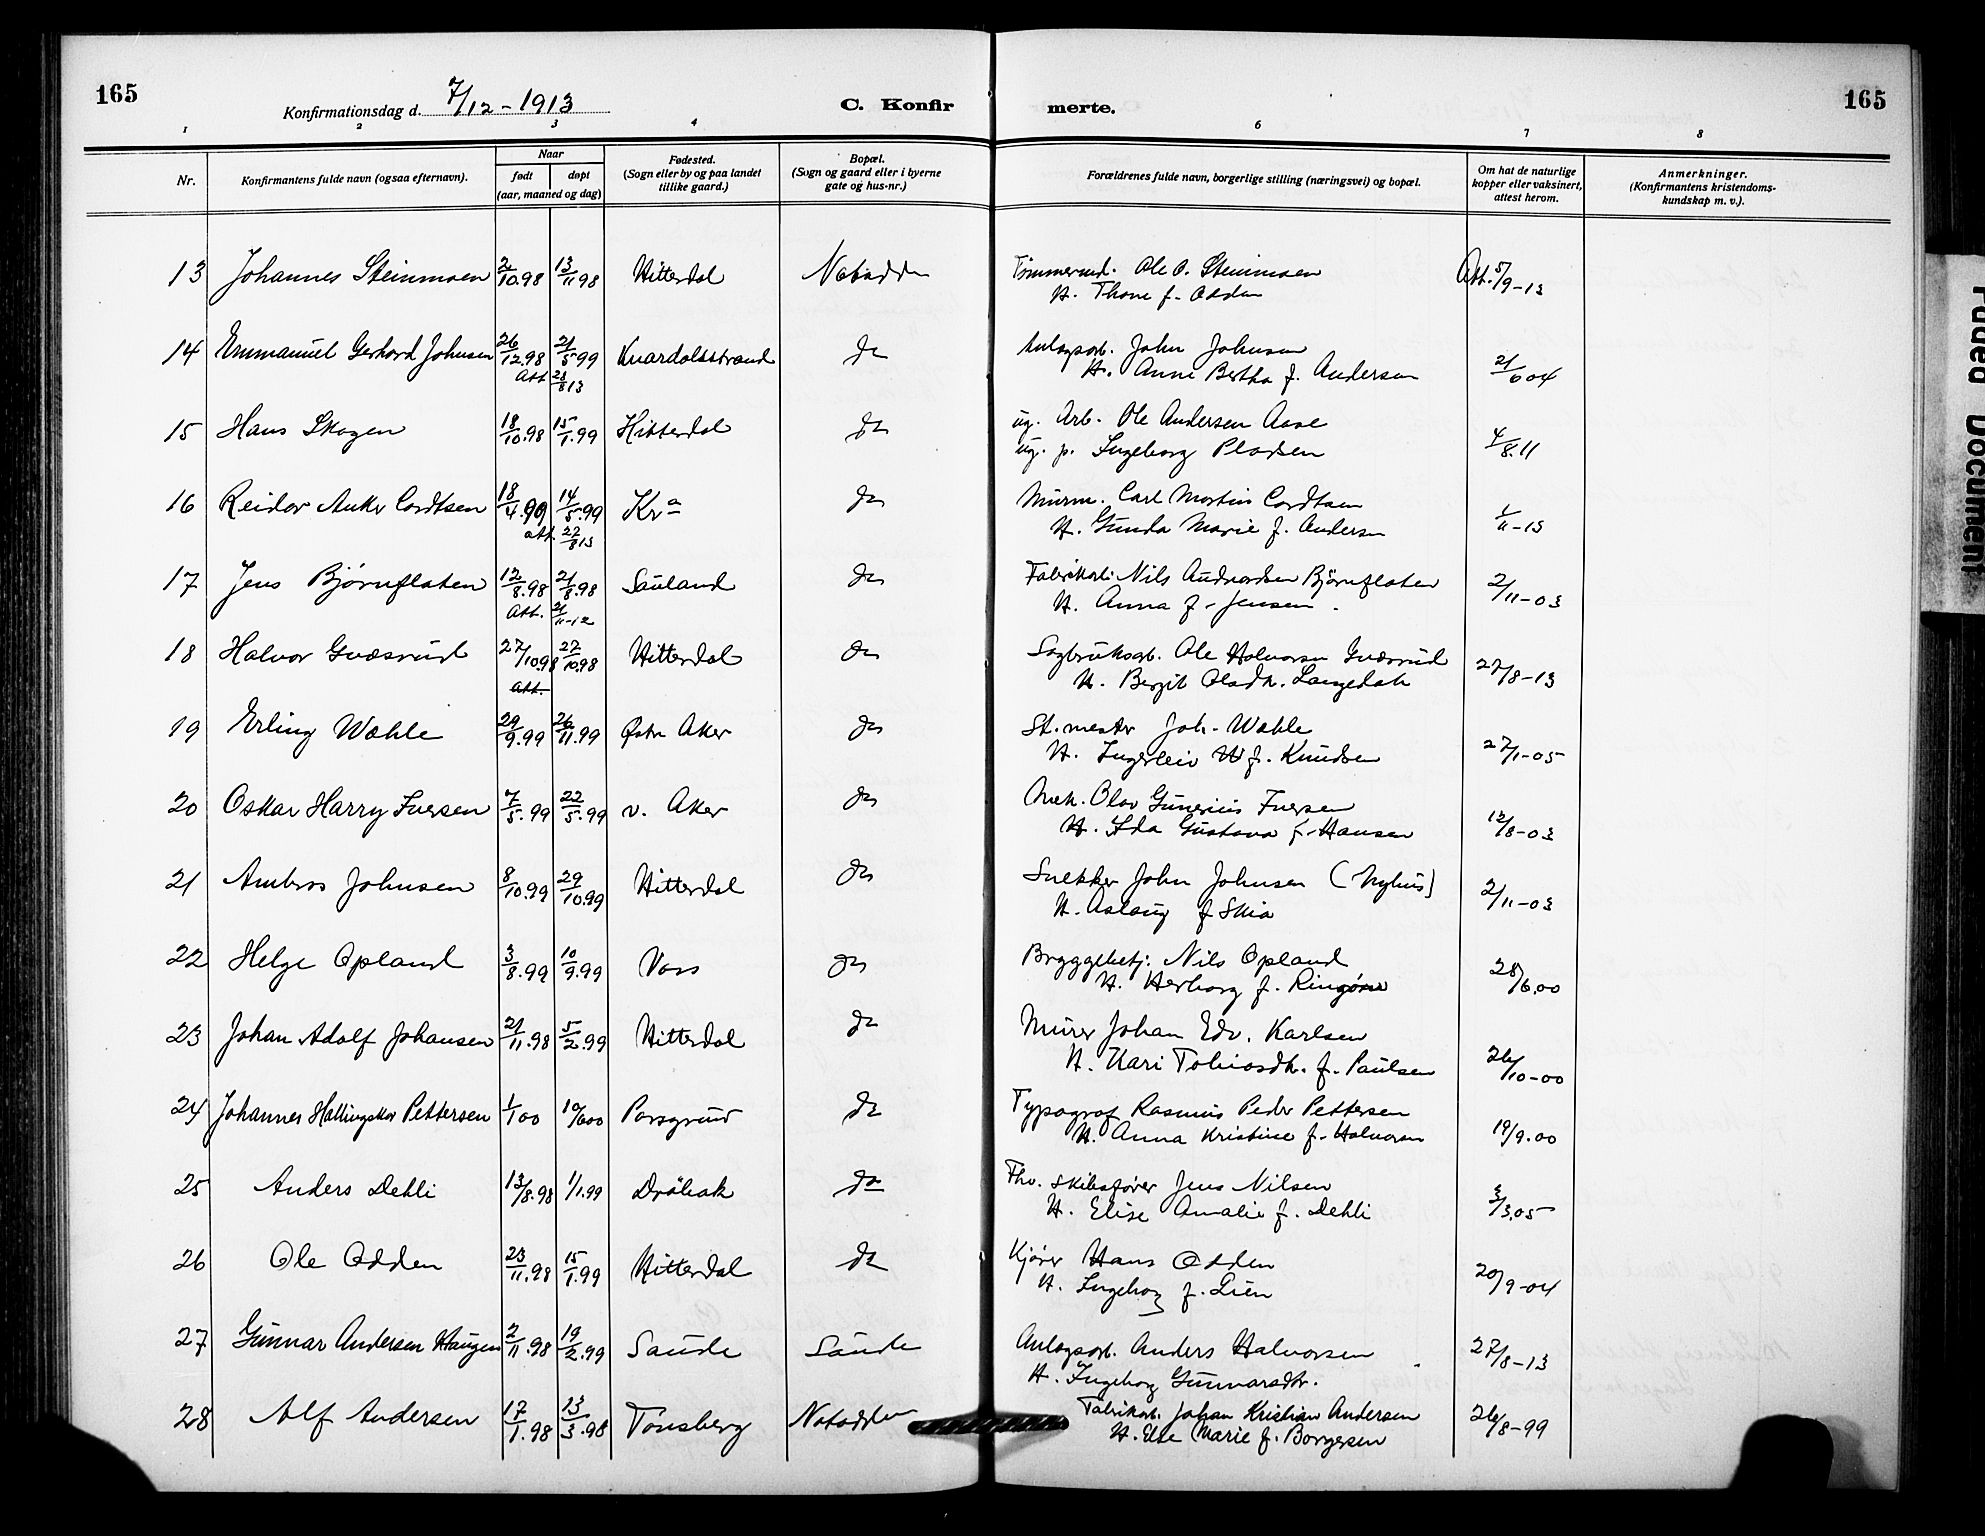 165
Konfirmationsdag d. 7/12-1913
C. Konfir
merte.
165
1 2 3 4 6 7 8
Nr.
Konfirmantens fulde navn (ogsaa efternavn).
Naar
født døpt
(aar, maaned og dag)
Fødested.
(Sogn eller by og paa landet
tillike gaard.)
Bopæl.
(Sogn og gaard eller i byerne
gate og hus-nr.)
Forældrenes fulde navn, borgerlige stilling (næringsvei) og bopæl.
Om hat de naturlige
kopper eller vaksinert,
attest herom.
Anmerkninger.
(Konfirmantens kristendoms-
kundskap m. v.).
13 Johannes Steinmoen 2/10.98 13/11 98 Hitterdal Notodden Tømmermd. Ole O. Steinmoen Att. 5/9-13
H. Thone f. Odden
14 Emmanuel Gerhard Johnsen 26/12.98 21/5 99 Knardalsstrand do Anlægsarb. John Johnsen
Att 28/8 13 H. Anne Bertha f. Andersen 21/6 04
15 Hans Skogen 18/10.98 15/1.99 Hitterdal do ug. Arb. Ole Andersen Aase
ug. p. Ingeborg Pladsen 4/8.11
16 Reidar Anker Cordtsen 18/4.99 14/5.99 Kra do Murm. Carl Martin Cordtsen
att. 22/8 13 H. Gunda Marie f. Andersen 1/11-13
17 Jens Bjørnflaten 12/8.98 21/8.98 Sauland do Fabrikarb. Nils Andreas­sen Bjørnflaten 2/11-03
Att. 21/11-12 H. Anna f. Jensen.
18 Halvor Gvæsrud 27/10.98 27/10.98 Hitterdal do Sagbruksarb. Ole Halvorsen Gvæsrud 27/8-13
Att. H. Bergit Olsdtr. Langedak
19 Erling Wæhle 29/9.99 26/11.99 Østre Aker do St. mester Joh. Wæhle
H. Ingerleiv W f. Knudsen 27/1-05
20 Oskar Harry Iversen 7/5.99 22/5.99 v. Aker do Mek. Olav Gunerius Iversen
H. Ida Gustava f. Hansen 12/8-03
21 Ambros Johnsen 8/10.99 29/10.99 Hitterdal do Snekker John Johnsen (Nyhus) 2/11-03
H. Aslaug f Skia
22 Helge Opland 3/8.99 10/9.99 Voss do Bryggebetj. Nils Opland 28/6.00
H. Herborg f. Ringøne
23 Johan Adolf Johansen 21/11.98 5/2.99 Hitterdal do Murer Johan Edv. Karlsen
H. Kari Tobiasdtr. f. Paulsen 26/10-00
24 Johannes Hallingskar Pettersen 1/1 00 10/6 00 Porsgrund do Typograf Rasmus Peder Pettersen
H. Anna Kristine f. Halvorsen 19/9.00
25 Anders Dehli 13/8.98 1/1.99 Drøbak do Fhv. skibsfører Jens Nilsen
H. Elise Amalie f. Dehli 3/3.05
26 Ole Odden 23/11.98 15/1.99 Hitterdal do Kjører Hans Odden
H. Ingeborg f. Lien 20/9-04
27 Gunnar Andersen Haugen 2/11.98 19/2.99 Saude Saude Anlægsarb. Anders Halvorsen 27/8-13
H. Ingeborg Gunnarsdtr.
28 Alf Andersen 17/1.98 13/3.98 Tønsberg Notodden Fabrikarb. Johan Kristian Andersen 26/8-99
H. Else Marie f. Borgersen
Faded Document